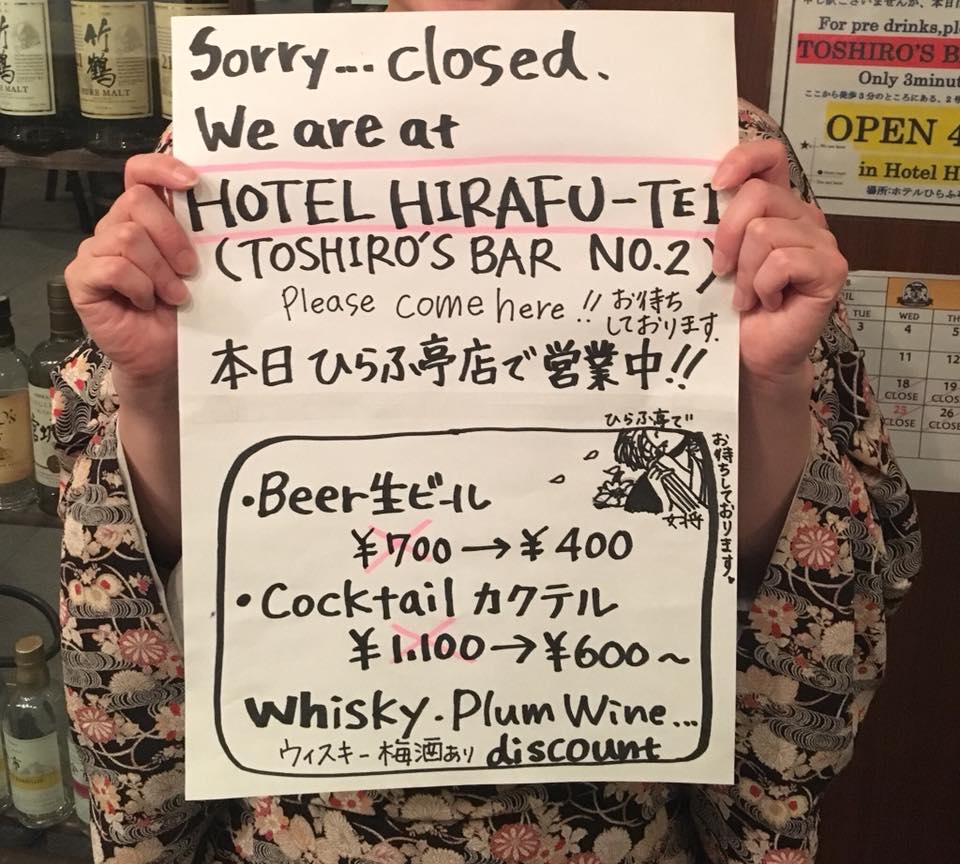 Sorry... closed.
We are at
HOTEL HIRAFU-TEI
(TOSHIRO'S BAR NO.2)
Please come here!! お待ち
しております.
本日ひらふ亭店で営業中!!
ひらふ亭で
お待ちしております。
女将
・Beer生ビール
¥700→¥400
・Cocktail カクテル
¥1.100→¥600~
Whisky. Plum Wine...
ウィスキー 梅酒あり discount
竹鶴
PURE MALT
竹鶴
PURE MALT
21
For pre drinks,pl
TOSHIRO'S B
Only 3minut
ここから徒歩3分のところにある、2号
OPEN 4
in Hotel H
場所:ホテルひらふ
WED TH
3 4 5
11 12
18 19
CLOSE CLOSE
25 26
CLOSE CLOSE